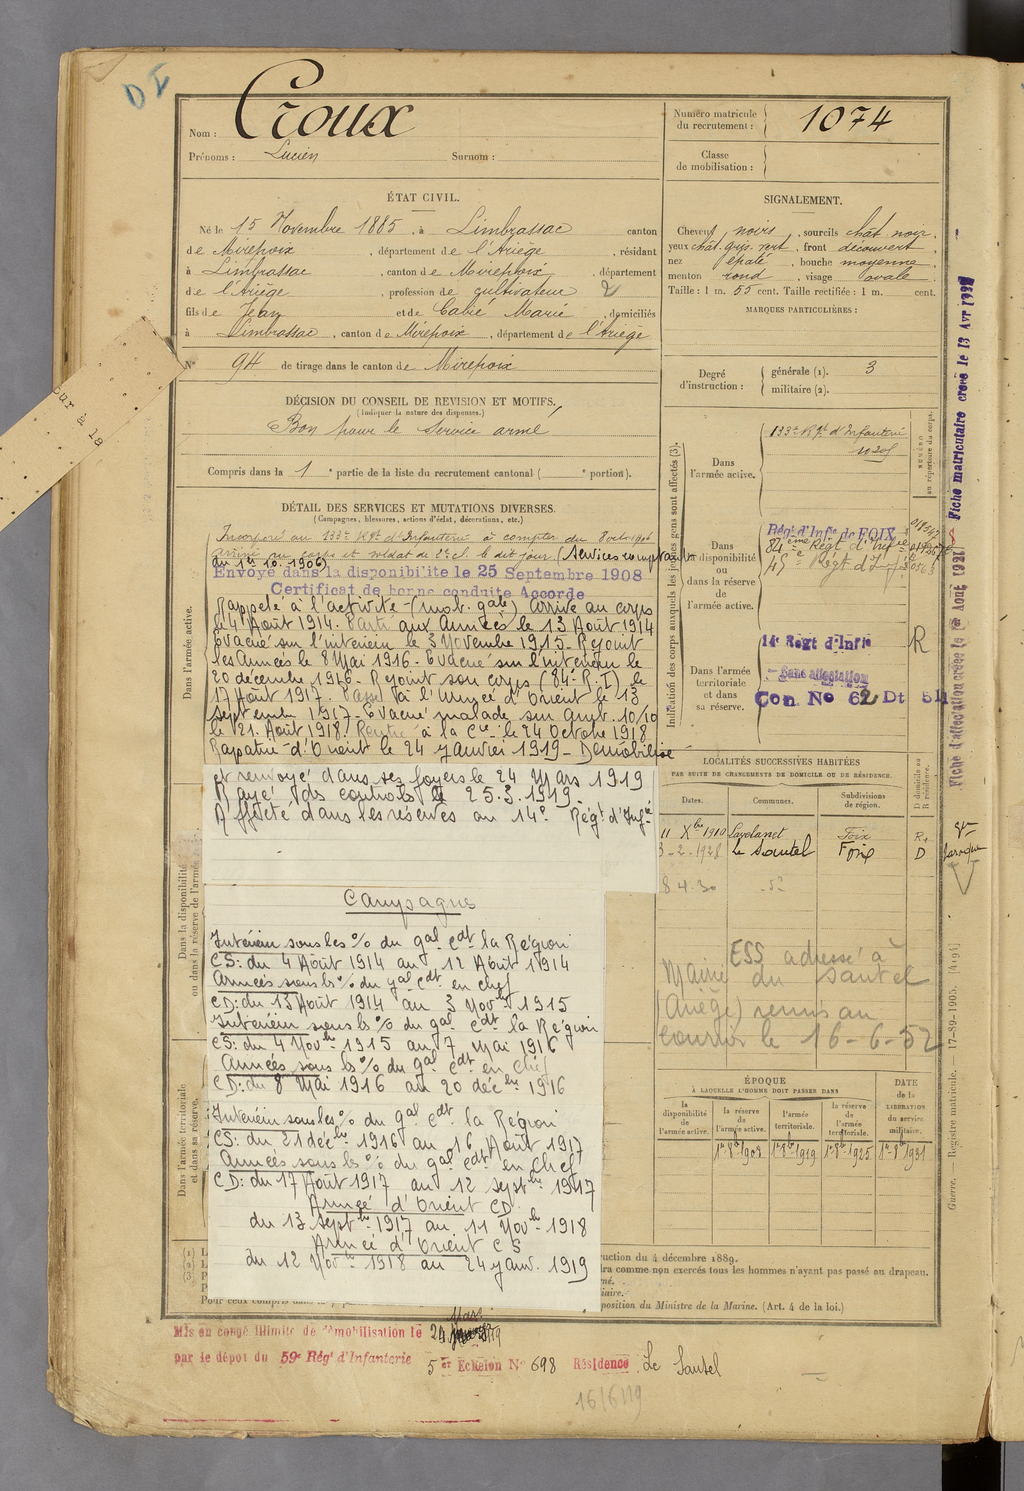 D I
Nom : Croux
Prénoms : Lucien Surnom :
Numéro matricule du recrutement : 1074
Classe de mobilisation :
ÉTAT CIVIL.
Né le 15 Novembre 1885, à Limbrassac canton
de Mirepoix, département de l'Ariège, résidant
à Limbrassac, canton de Mirepoix, département
de l'Ariège, profession de cultivateur 2
fils de Jean et de Cabié Marie, domiciliés
à Limbrassac, canton de Mirepoix, département de l'Ariège
N° 94 de tirage dans le canton de Mirepoix
SIGNALEMENT.
Cheveux noirs, sourcils chât noir,
yeux chât. gris. vert, front découvert,
nez épaté, bouche moyenne,
menton rond, visage ovale.
Taille : 1 m. 55 cent. Taille rectifiée : 1 m. cent.
MARQUES PARTICULIÈRES :
Degré d'instruction : générale (1). 3
militaire (2).
DÉCISION DU CONSEIL DE REVISION ET MOTIFS.
(Indiquer la nature des dispenses.)
Bon pour le service armé
Compris dans la 1 e partie de la liste du recrutement cantonal ( e portion).
our à la
DÉTAIL DES SERVICES ET MUTATIONS DIVERSES.
(Campagnes, blessures, actions d'éclat, décorations, etc.)
Dans l'armée active.
Incorporé au 133e Rgt d'Infanterie à compter du 8 octo 1906
arrivé au corps et soldat de 2e cl. le dit jour (services comptant
du 1er 10. 1906).
Envoyé dans la disponibilité le 25 Septembre 1908
Certificat de bonne conduite Accordé
Rappelé à l'activité (mob. gale) Arrivé au corps
le 4 Août 1914. Parti aux Armées le 13 Août 1914
Évacué sur l'intérieur le 3 Novembre 1915. Rejoint
les Armées le 8 Mai 1916. Évacué sur l'intérieur le
20 décembre 1916. Rejoint son corps (84e R.I) le
17 Août 1917. Passé à l'Armée d'Orient le 13
septembre 1917. Évacué malade sur Amb. 10/10
le 21. Août 1918. Rentré à la Cie le 24 Octobre 1918
Rapatrié d'Orient le 24 janvier 1919. Démobilisé
et renvoyé dans ses foyers le 24 Mars 1919
Rayé des contrôles le 25.3.1919.
Affecté dans les réserves au 14e Régt d'Infie
Dans la disponibilité ou dans la réserve de l'armée
Campagnes
Intérieur sous les % du gal Cdt la Région
CS: du 4 Août 1914 au 12 Août 1914
Armées sous ls % du gal Cdt en chef
CD: du 13 Août 1914 au 3 Novbre 1915
Intérieur sous ls % du gal Cdt la Région
CS: du 4 Novbre 1915 au 7 Mai 1916
Armées sous ls % du gal Cdt en Chef
CD: du 8 Mai 1916 au 20 décbre 1916
Dans l'armée territoriale et dans sa réserve.
Intérieur sous les % du gal Cdt la Région
CS: du 21 décbre 1916 au 16 Août 1917
Armées sous ls % du gal Cdt en Chef
CD: du 17 Août 1917 au 12 septbre 1917
Armée d'Orient CD
du 13 septbre 1917 au 11 Novbre 1918
Armée d'Orient CS
du 12 Novbre 1918 au 24 janv. 1919
Indication des corps auxquels les jeunes gens sont affectés (3).
NUMÉRO au répertoire du corps.
Dans l'armée active.
133e Rgt d'Infanterie
Dans la disponibilité ou dans la réserve de l'armée active.
Régt d'Infie de FOIX
84ème Régt d'Infie
Dans l'armée territoriale et dans sa réserve.
14e Regt d'Infie R
Sans affectation
Con No 62 Dt 5
LOCALITÉS SUCCESSIVES HABITÉES
PAR SUITE DE CHANGEMENTS DE DOMICILE OU DE RÉSIDENCE.
Dates. Communes. Subdivisions de région. D domicile ou R résidence.
11 Xbre 1910 Lavelanet Foix R.
3-2-1928 Le Sautel Foix D
8 4.30
ESS adressé à
Mairie du Sautel
(Ariège) remis au
courrier le 16-6-52
ÉPOQUE
À LAQUELLE L'HOMME DOIT PASSER DANS
la disponibilité de l'armée active. la réserve de l'armée active. l'armée territoriale. la réserve de l'armée territoriale.
DATE de la LIBÉRATION du service militaire.
1er 8bre 1908 1er 8bre 1919 1er 8bre 1925 1er 8bre 1931
ruction du 4 décembre 1889.
ra comme non exercés tous les hommes n'ayant pas passé au drapeau.
né.
iaire.
position du Ministre de la Marine. (Art. 4 de la loi.)
Pour ceux compris dans
Guerre. — Registre matricule. 17-89-1905. [4194]
Fiche d'affectation créée le 1er Août 1927
Fiche matriculaire créée le 13 Avr
Mis en congé illimité de démobilisation le 24 Mars 1919
par le dépôt du 59e Régt d'Infanterie 5 er Echelon N° 698 Résidence Le Sautel
16/6/19